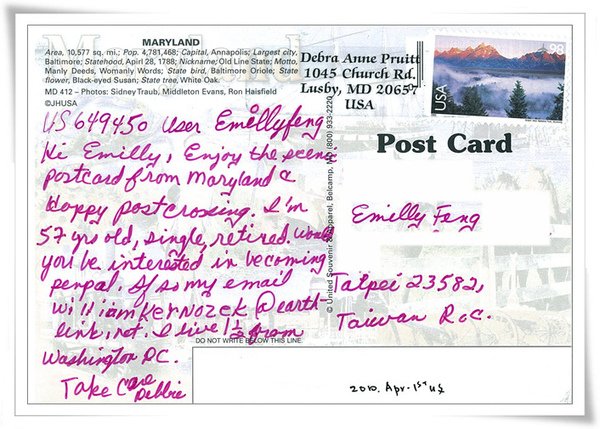 MARYLAND
Area, 10,577 sq. mi.; Pop. 4,781,468; Capital, Annapolis; Largest city,
Baltimore; Statehood, Apirl 28, 1788; Nickname; Old Line State; Motto,
Manly Deeds, Womanly Words; State bird, Baltimore Oriole; State
flower, Black-eyed Susan; State tree, White Oak.
MD 412 – Photos: Sidney Traub, Middleton Evans, Ron Haisfield
©JHUSA
US649450 User Emillyfeng
Hi Emilly, Enjoy the scenic
postcard from Maryland &
Happy postcrossing. I'm
57 yrs old, single, retired. Would
you be interested in becoming
penpal. If so my email
williamkernozek@earth-
link.net. I live 1 1/2 from
Washington DC.
Take Care
Debbie
DO NOT WRITE BELOW THIS LINE.
© United Souvenir & Apparel, Belcamp, MD (800) 933-2220
Debra Anne Pruitt
1045 Church Rd.
Lusby, MD 20657
USA
USA
98
Post Card
Emilly Feng
Taipei 23582,
Taiwan R.O.C.
2010. Apr-1st US